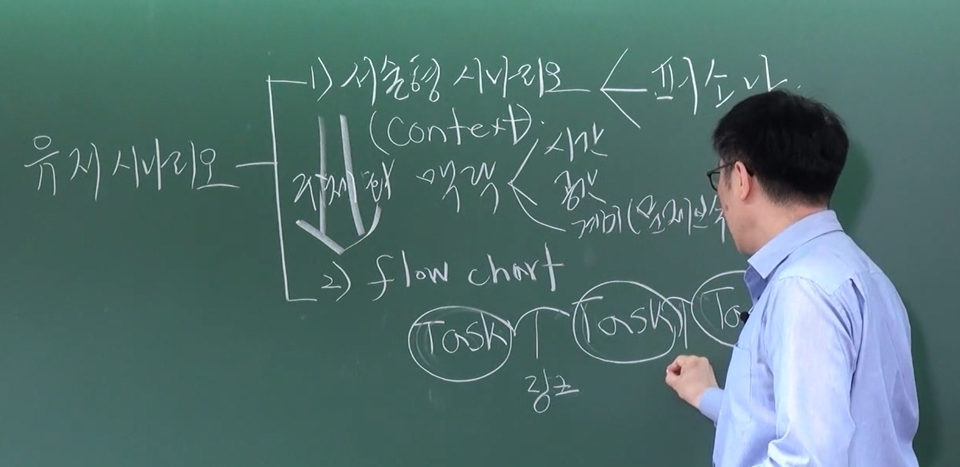 유저 시나리오
1) 서술형 시나리오 < 페르소나
(Context)
구체화 맥락
시간
공간
계기(문제인식
2) flow chart
Task Task Ta
광고